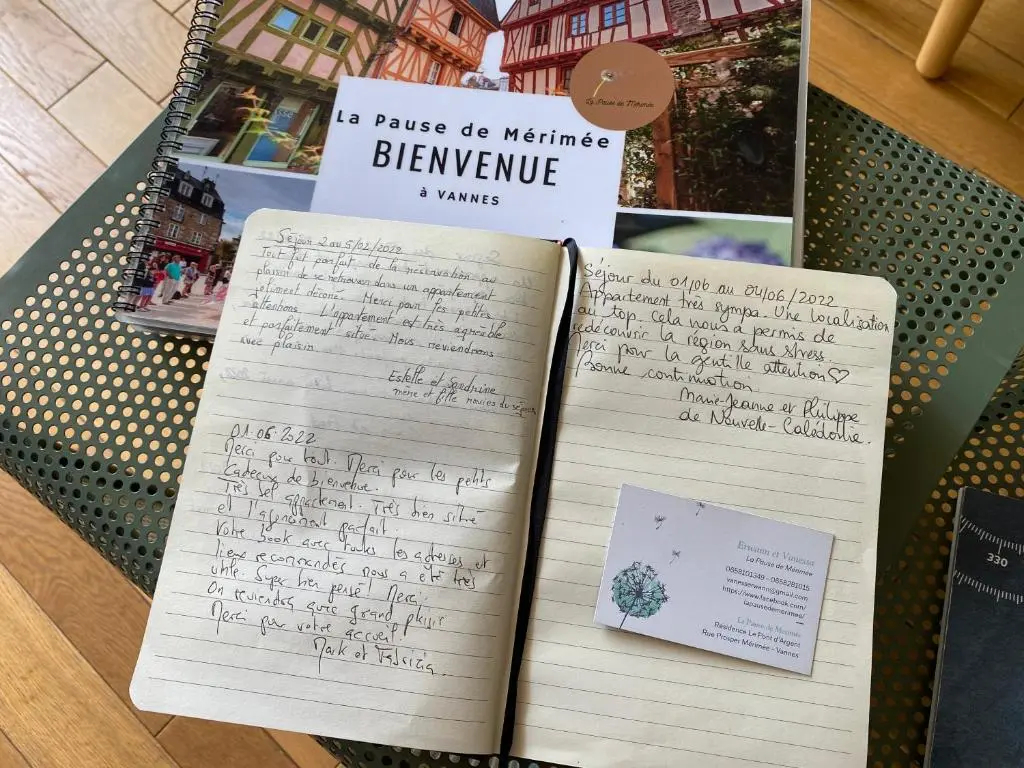 La Pause de Mérimée
La Pause de Mérimée
BIENVENUE
à VANNES
Séjour 2 au 5/02/2022
Tout fut parfait de la réservation au
plaisir de se retrouver dans un appartement
joliment décoré. Merci pour les petites
attentions. L'appartement est très agréable
et parfaitement situé. Nous reviendrons
avec plaisir
Estelle et Sandrine
mère et fille ravies du séjour
01.06.2022
Merci pour tout. Merci pour les petits
Cadeaux de bienvenue.
Très bel appartement. Très bien situé
et l'agencement parfait.
Votre book avec toutes les adresses et
lieux recommandés nous a été très
utile. Super bien pensé! Merci.
On reviendra avec grand plaisir
Merci pour votre accueil
Mark et Fabrizia.
Séjour du 01/06 au 04/06/2022
Appartement très sympa. Une localisation
au top. Cela nous a permis de
redécouvrir la région sans stress.
Merci pour la gentille attention
Bonne continuation
Marie-Jeanne et Philippe
de Nouvelle-Calédonie.
Erwann et Vanessa
La Pause de Mérimée
0658101349 - 0658281015
vanesserwann@gmail.com
https://www.facebook.com/
lapausedemerimee/
La Pause de Mérimée
Résidence Le Pont d'Argent
Rue Prosper Mérimée - Vannes
330